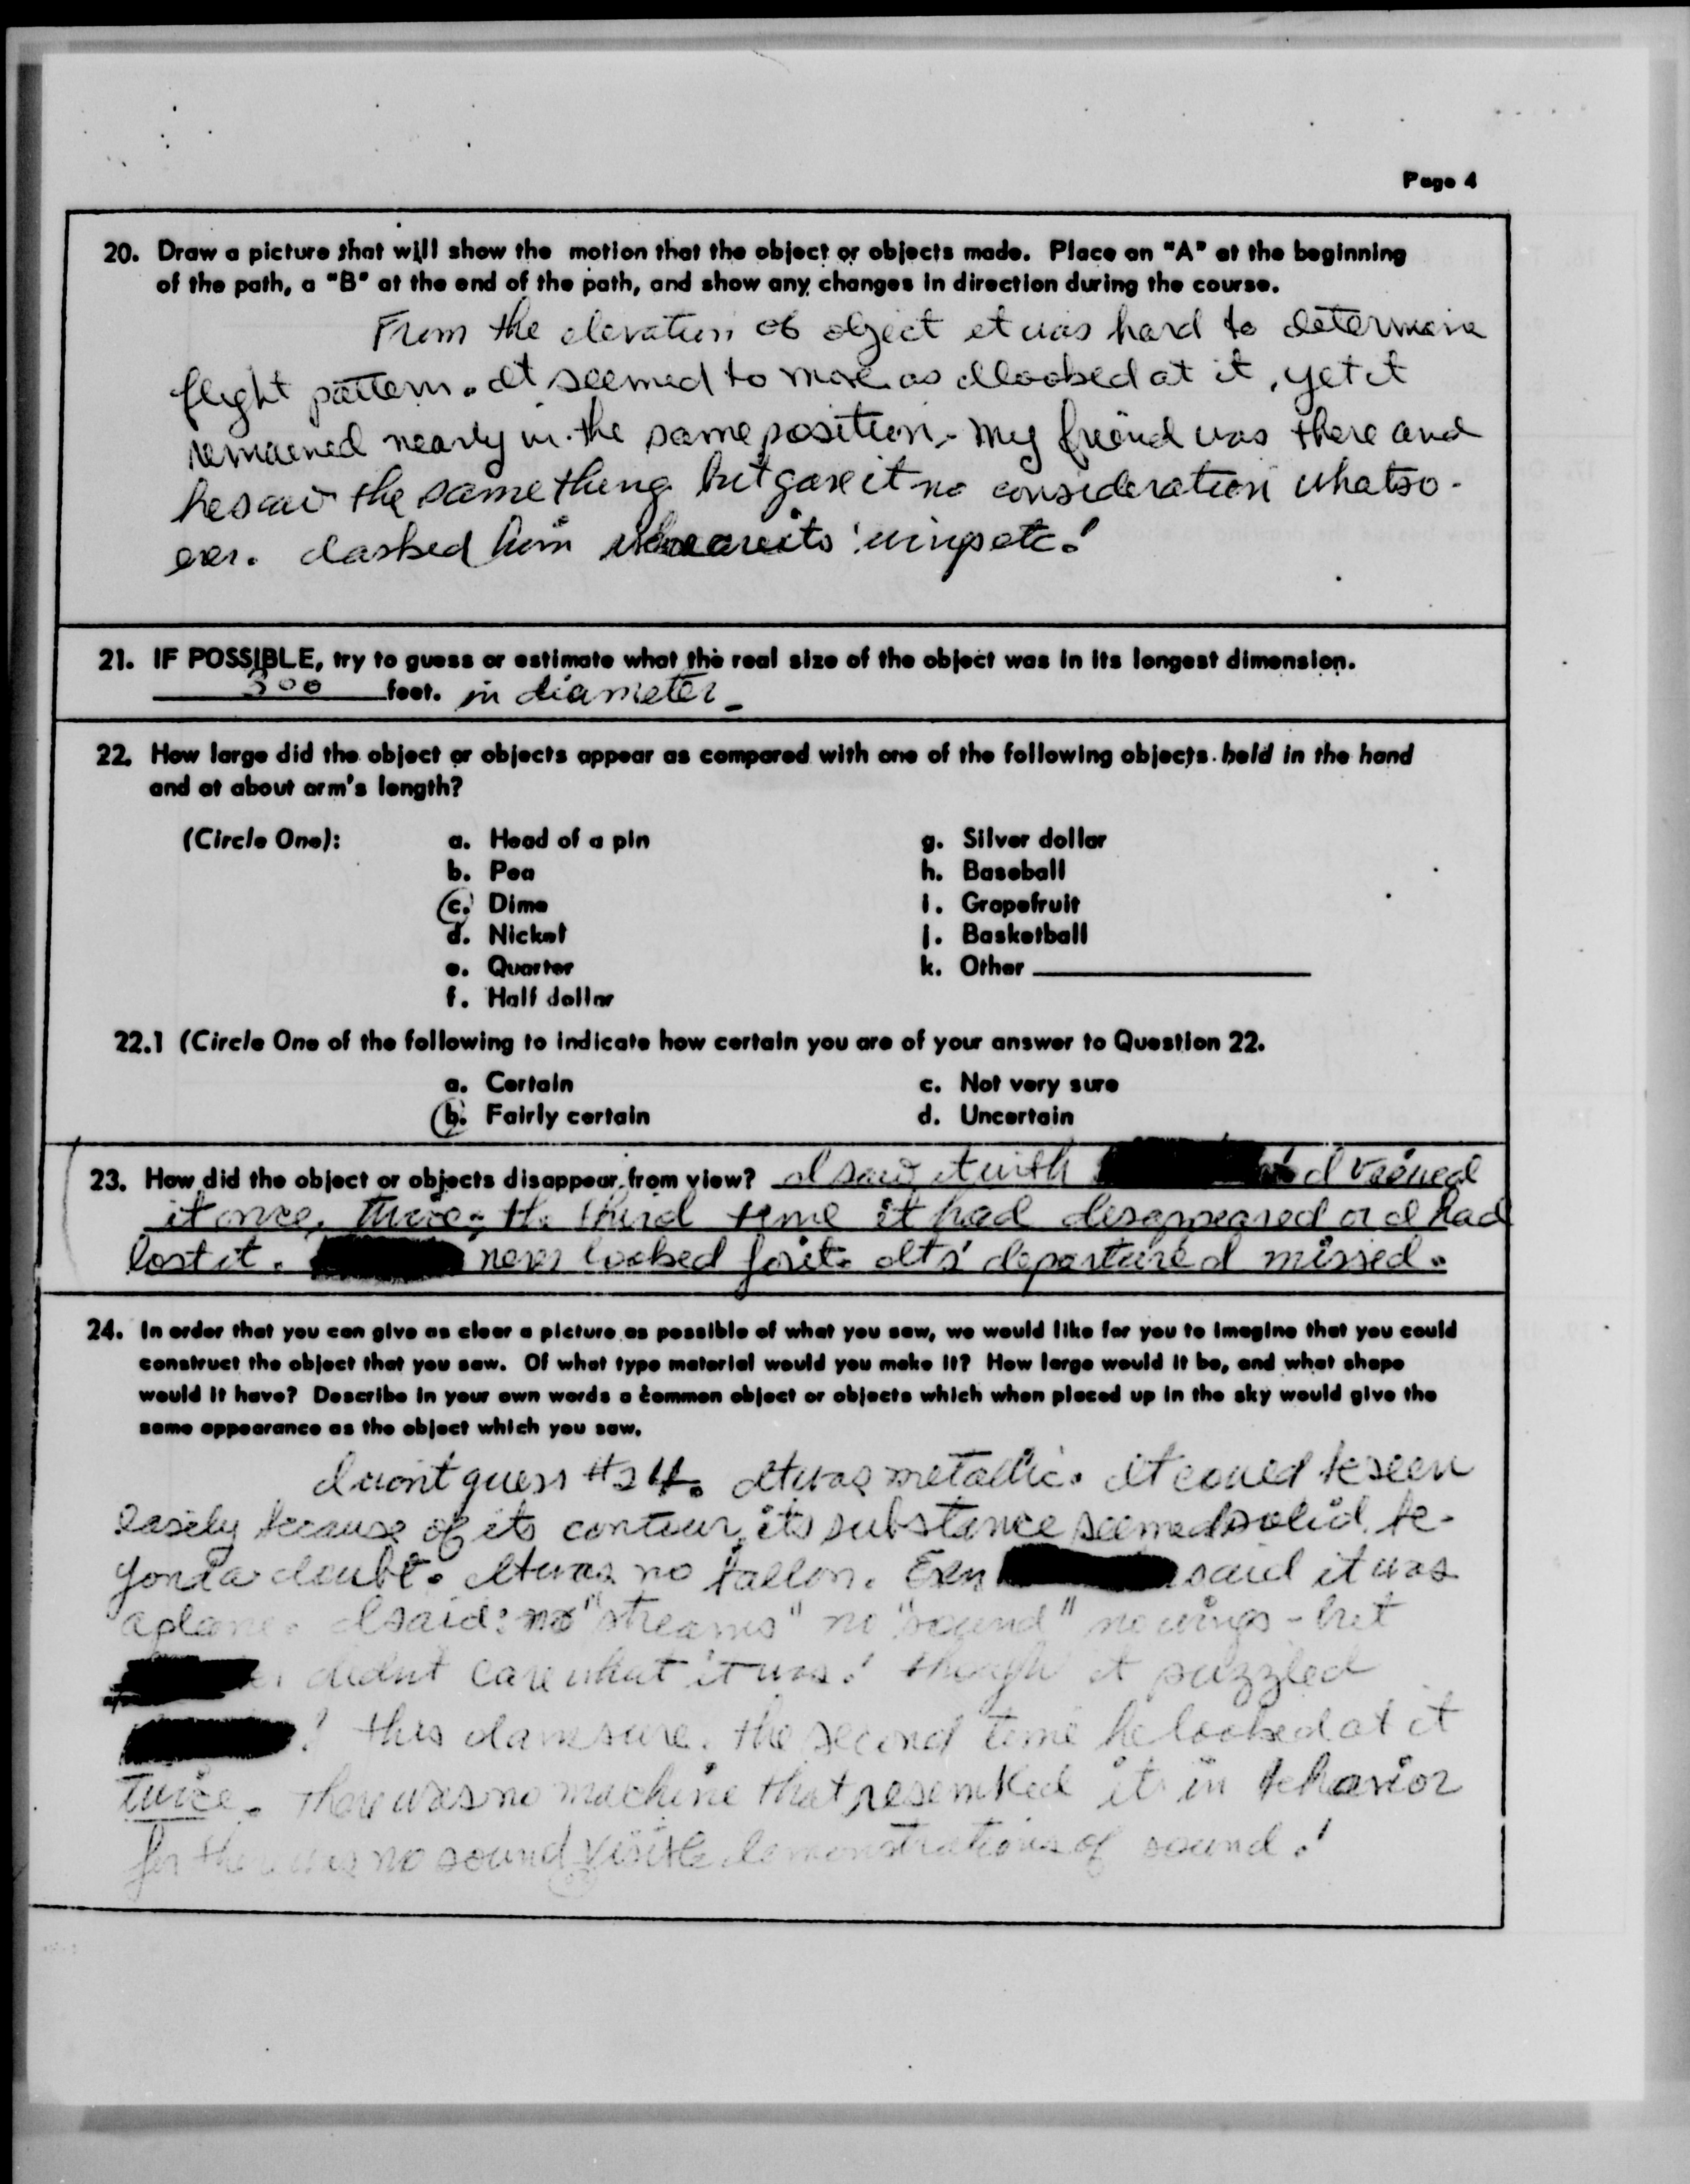 Page 4
20. Draw a picture that will show the motion that the object or objects made. Place an "A" at the beginning
of the path, a "B" at the end of the path, and show any changes in direction during the course.
From the elevation of object it was hard to determine
flight pattern. It seemed to move as I looked at it, yet it
remained nearly in the same position. My friend was there and
he saw the same thing but gave it no consideration whatso-
ever. I asked him where are its 'wings etc.!
21. IF POSSIBLE, try to guess or estimate what the real size of the object was in its longest dimension.
300 feet. in diameter
22. How large did the object or objects appear as compared with one of the following objects held in the hand
and at about arm's length?
(Circle One): a. Head of a pin g. Silver dollar
b. Pea h. Baseball
c. Dime i. Grapefruit
d. Nickel j. Basketball
e. Quarter k. Other
f. Half dollar
22.1 (Circle One of the following to indicate how certain you are of your answer to Question 22.
a. Certain c. Not very sure
b. Fairly certain d. Uncertain
23. How did the object or objects disappear from view? I saw it with I viewed
it once, twice; the third time it had desappeared or I had
lost it. never looked for it. Its' departure I missed.
24. In order that you can give as clear a picture as possible of what you saw, we would like for you to imagine that you could
construct the object that you saw. Of what type material would you make it? How large would it be, and what shape
would it have? Describe in your own words a common object or objects which when placed up in the sky would give the
same appearance as the object which you saw.
I won't guess #24. It was metallic. It could be seen
easily because of its contour, its substance seemed solid be-
yond a doubt. It was no ballon. Even said it was
a plane. I said: no "streams" no "sound" no wings - but
didn't care what it was! though it puzzled
! this I am sure. the second time he looked at it
twice. There was no machine that resembled it in behavior
for there was no sound visible demonstrations of sound!